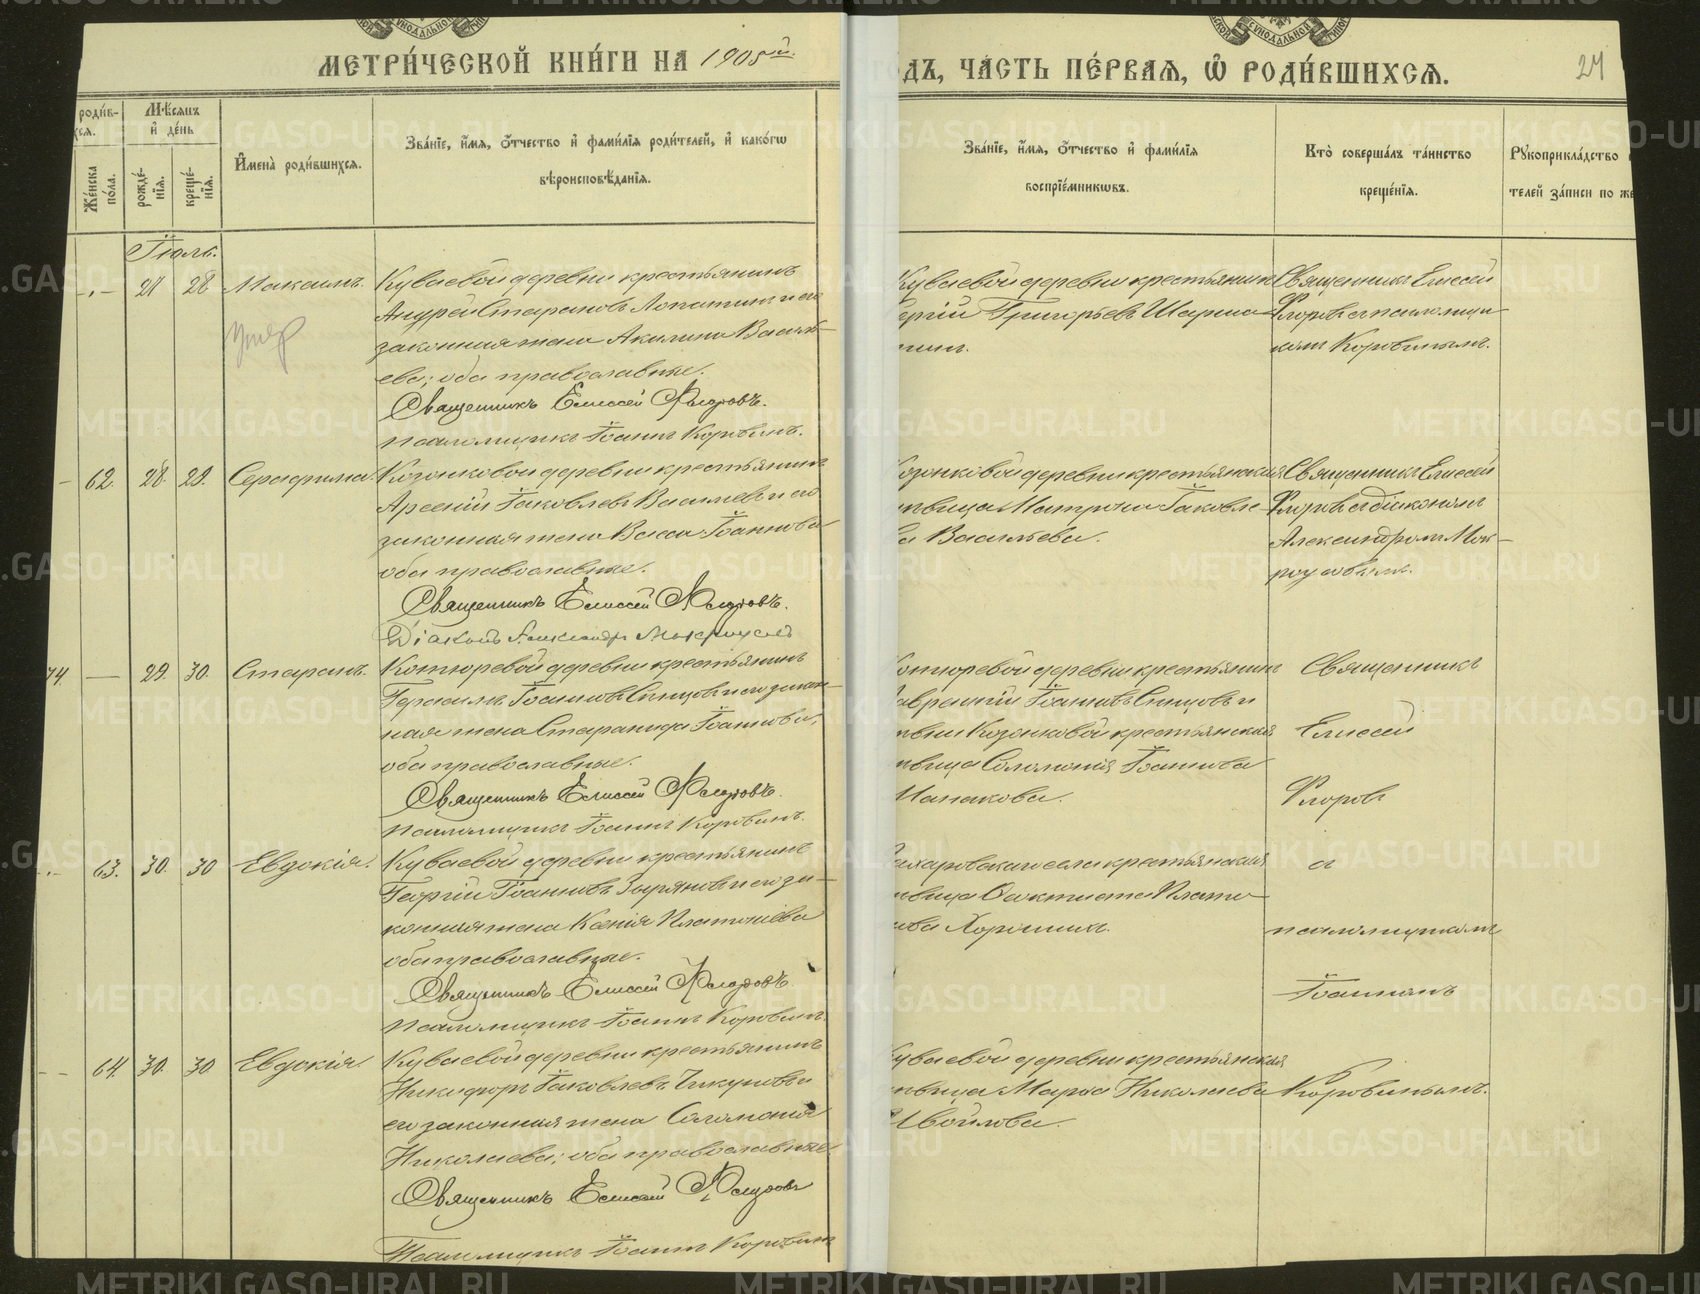 МЕТРИ́ЧЕСКОЙ КНИ́ГИ НА 1905й
ДЪ, ЧА́СТЬ ПЕ́РВАЯ, Ѽ РОДИ́ВШИХСЯ.
24
роди́в-
хся.
Мѣ́сяцъ
и҆ де́нь
Же́нска
по́ла.
рожде́-
нїя.
креще́-
нїя.
И҆мена̀ роди́вшихся.
Зва́нїе, и҆́мя, ѻ҆́тчество и҆ фами́лїя роди́телей, и҆ како́гѡ
вѣроисповѣ́данїя.
Зва́нїе, и҆́мя, ѻ҆́тчество и҆ фами́лїя
воспрїе́мникѡвъ.
Кто̀ соверша́лъ та́инство
креще́нїя.
Рꙋкоприкла́дство
телей за́писи по же
Іюль.
27 28 Максимъ.
умер
Куваевой деревни крестьянинъ
Андрей Стефановъ Лопатинъ и его
законная жена Акилина Василь-
ева; оба православные.
Священникъ Елиссей Флоровъ.
Псаломщикъ Іоаннъ Коровинъ.
Куваевой деревни крестьянинъ
ергій Григорьевъ
Священникъ Елисей
Флоровъ съ псаломщи
комъ Коровинымъ.
62. 28. 29. Серафима.
Козонковой деревни крестьянинъ
Арсеній Іаковлевъ Васильевъ и его
законная жена Васса Іоаннова
оба православные.
Священникъ Елиссей Флоровъ.
Діаконъ Александръ Мокроусовъ
озонковой деревни крестьянская
вица Матрона Іаковле-
ва Васильева.
Священникъ Елисей
Флоровъ съ діакономъ
Александромъ Мок-
роусовымъ.
74. — 29. 30. Стефанъ.
Котюревой деревни крестьянинъ
Герасимъ Іоанновъ Спицовъ и его закон-
ная жена Стефанида Іоаннова,
оба православные.
Священникъ Елиссей Флоровъ.
Псаломщикъ Іоаннъ Коровинъ.
отюревой деревни крестьянинъ
аврентій Іоанновъ Спицовъ и
вни Козонковой крестьянская
вица Соломонія Іоаннова
Манакова.
Священникъ
Елисей
Флоровъ
съ
псаломщикомъ
Іоанномъ
Коровинымъ.
63. 30. 30 Евдокія.
Куваевой деревни крестьянинъ
Георгій Іоанновъ Зыряновъ и его за-
конная жена Ксенія Платонова
оба православные.
Священникъ Елиссей Флоровъ
Псаломщикъ Іоаннъ Коровинъ.
ахаровскаго села крестьянская
вица Платo
нова Хорошихъ.
64. 30. 30. Евдокія.
Куваевой деревни крестьянинъ
Никифоръ Іаковлевъ Чикуновъ и
его законная жена Соломонія
Николаева; оба православные
Священникъ Елиссей Флоровъ
Псаломщикъ Іоаннъ Коровинъ
уваевой деревни крестьянская
вица Марѳа Николаева
Ивойлова.